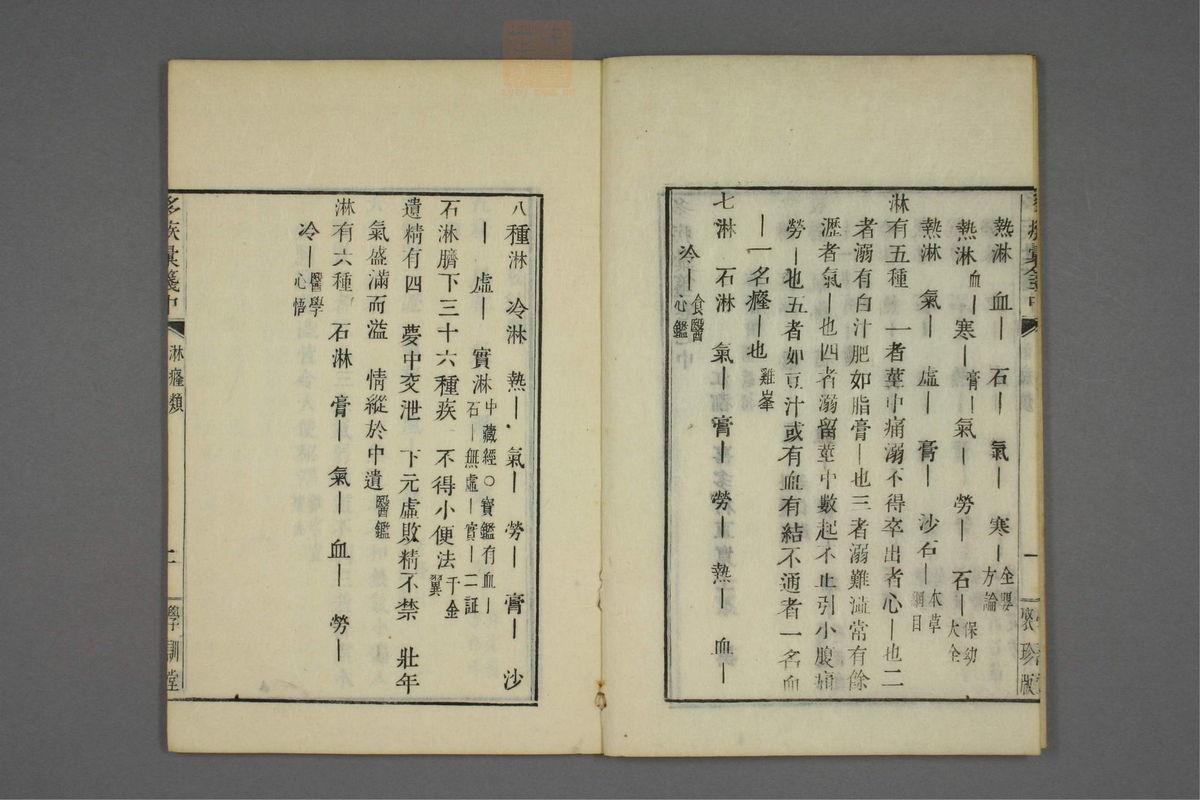 熱淋　血｜　石｜　氣｜　寒｜全嬰方論
熱淋血｜寒｜膏｜氣｜　勞｜　石｜保幼大全
熱淋　氣｜　虛｜　膏｜　沙石｜本草綱目
淋有五種　一者莖中痛溺不得卒出者心｜也二
者溺有白汁肥如脂膏｜也三者溺難澁常有餘
瀝者氣｜也四者溺留莖中數起不止引小腹痛
勞｜也五者如豆汁或有血有結不通者一名血
｜一名癃｜也雞峯
七淋　石淋　氣｜　膏｜　勞｜　熱｜　血｜
冷｜食醫心鑑
聚珍版
八種淋　冷淋　熱｜　氣｜　勞｜　膏｜　沙
｜　虛｜　實淋中藏經○寶鑑有血｜石｜無虛｜實｜二証
石淋臍下三十六種疾　不得小便法千金翼
遺精有四　夢中交泄　下元虛敗精不禁　壯年
氣盛滿而溢　情縱於中遺醫鑑
淋有六種　石淋　膏｜　氣｜　血｜　勞｜
冷｜醫學心悟
彙箋中　淋癃類　二　學訓堂